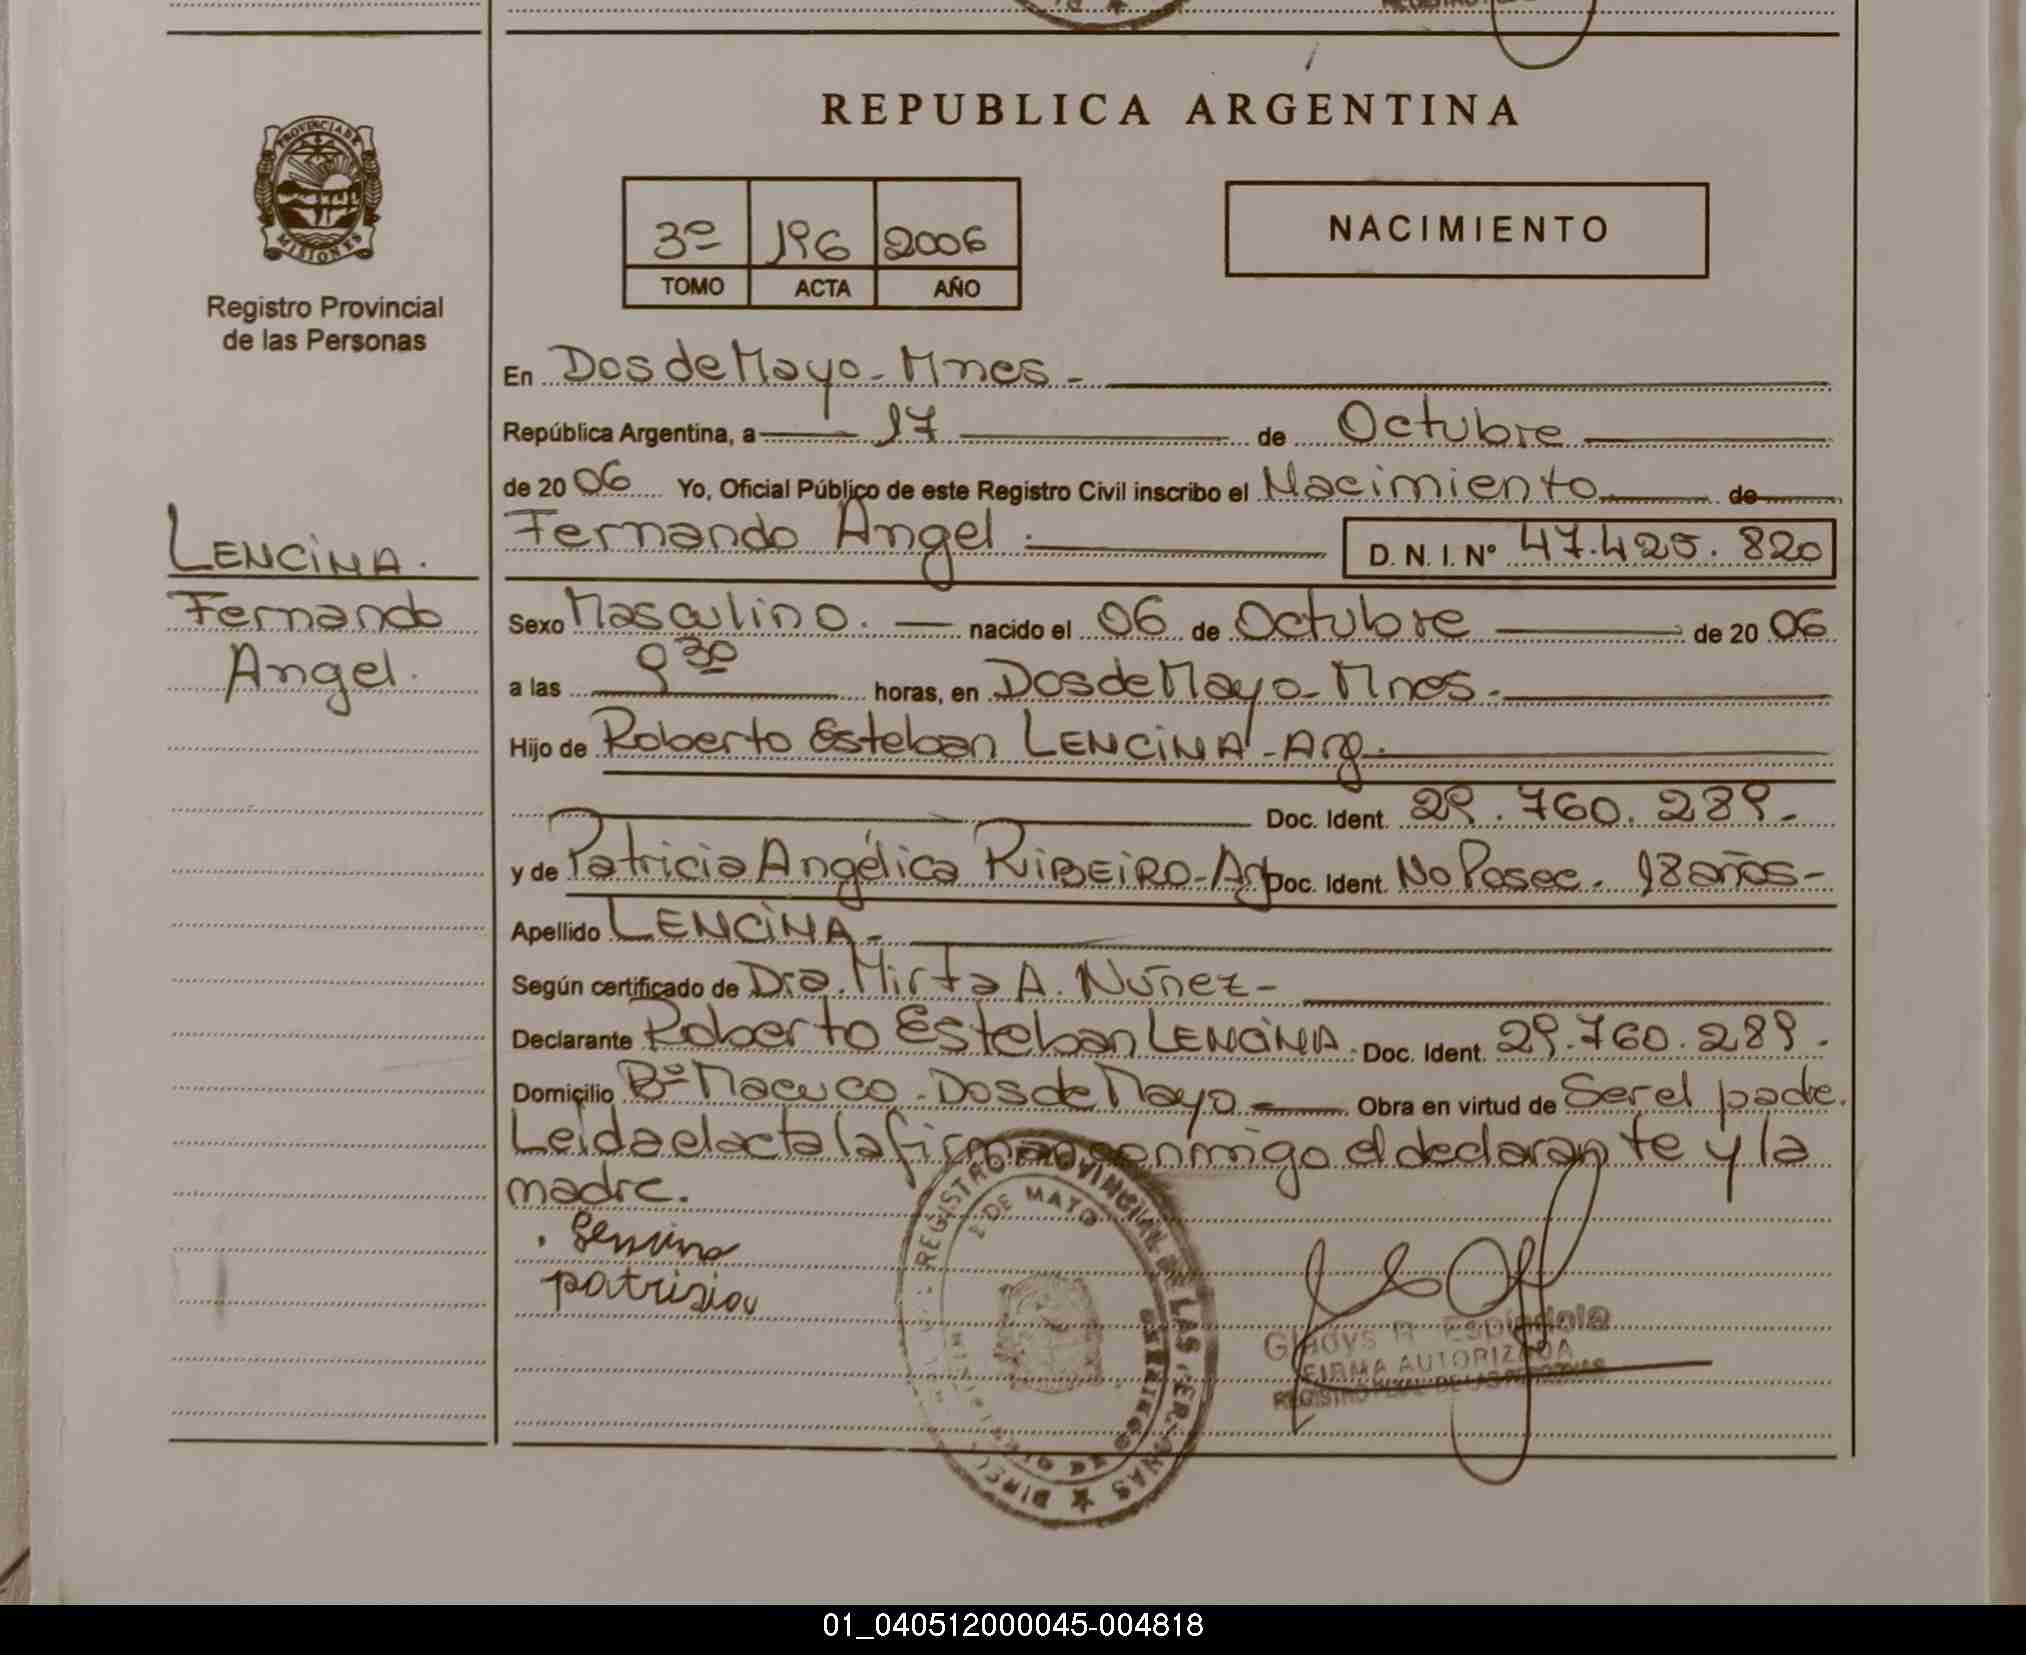 REPUBLICA ARGENTINA
PROVINCIA DE MISIONES
Registro Provincial
de las Personas
3º 196 2006
TOMO ACTA AÑO
NACIMIENTO
En Dos de Mayo - Mnes -
República Argentina, a 17 de Octubre
de 2006 Yo, Oficial Público de este Registro Civil inscribo el Nacimiento de
Fernando Angel. D. N. I. Nº 47.425.820
LENCINA.
Fernando
Angel.
Sexo Masculino. nacido el 06 de Octubre de 2006
a las 9 30 horas, en Dos de Mayo - Mnes.
Hijo de Roberto Esteban LENCINA - Arg.
Doc. Ident. 29.760.289.
y de Patricia Angélica RIBEIRO - Arg Doc. Ident. No Posee. 18 años -
Apellido LENCINA -
Según certificado de Dra. Mirta A. Núñez -
Declarante Roberto Esteban LENCINA. Doc. Ident. 29.760.289.
Domicilio Bº Macuco - Dos de Mayo - Obra en virtud de Ser el padre.
Leida el acta la firman conmigo el declarante y la
madre.
patrisia
REGISTRO PROVINCIAL DE LAS PERSONAS
2 DE MAYO
Gladys R. Espindola
FIRMA AUTORIZADA
REGISTRO PCIAL. DE LAS PERSONAS
01_040512000045-004818